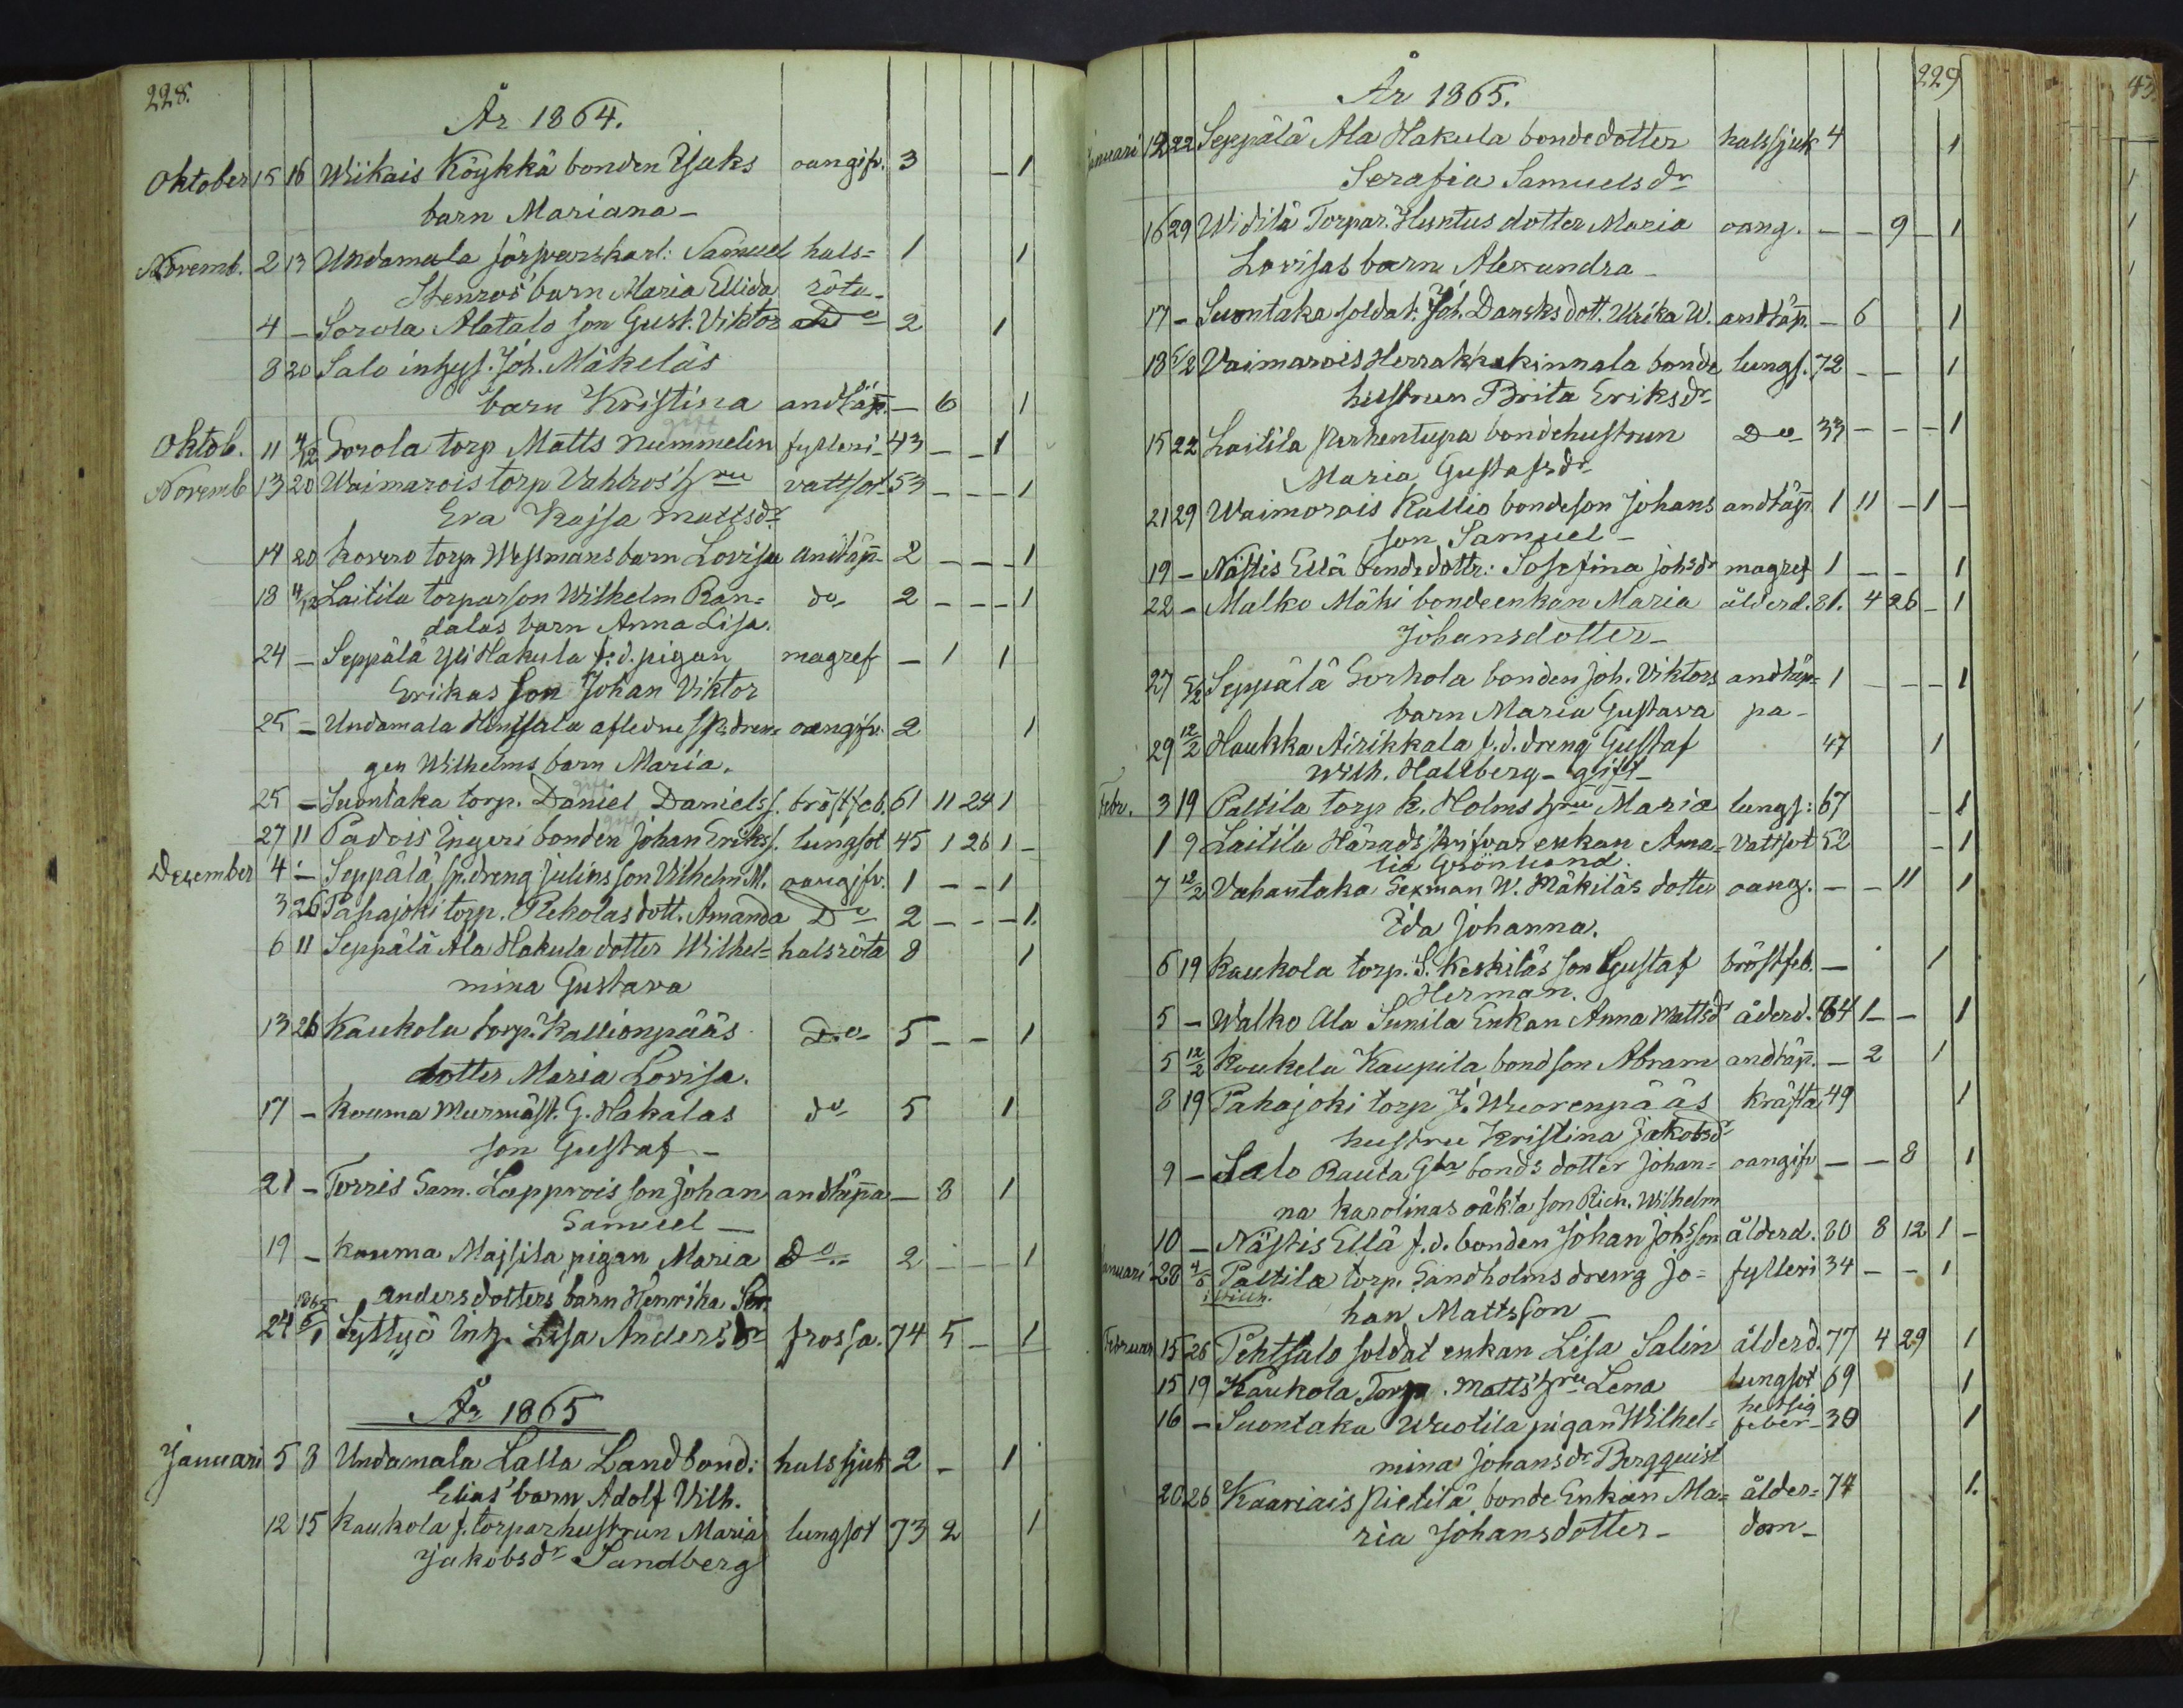 228.
År 1864.
Oktober 15 16 Wiikais Köykkä bonden Isaks oangifv. 3 – 1
barn Mariana –
Novemb. 2 13 Undamala försvarskarl: Samuel hals= 1 1
Stenros' barn Maria Elida röta –
4 – Sorola Alatalo son Gust. Viktor Do 2 1
8 20 Salo inhys. Joh. Mäkeläs
barn Kristina andtäp. – 6 1
gift
Oktob. 11 4/12 Sorola torp Matts Nummelin fylleri – 43 – – 1
Novemb 13 20 Waimarois torp Vahlros' hru vattsot 53 – – – 1
Eva Kajsa Mattsdr
14 20 Kovero torp. Wessmans barn Lovisa andtäp. 2 – – – 1
18 4/12 Laitila torparson Wilhelm Ran= do 2 – – – 1
dalas barn Anna Lisa.
24 – Seppälä Yli Hakula f.d. pigan magref – 1 1
Erikas son Johan Viktor
25 – Undamala afledne sp. dren= oangifv. 2 1
gen Wilhelms barn Maria.
gift
25 – Suontaka torp. Daniel Daniels s. bröstfeb. 61 11 24 1
gift
27 11 Padois Ingeri bonden Johan Eriks s. lungsot 45 1 26 1 –
December 4 – Seppälä, sp. dreng Julius son Vilhelm M. oangifv. 1 – – 1
3 26 Pahajoki torp. Rekolas dott. Amanda Do 2 – – – 1.
6 11 Seppälä Ala Hakula dotter Wilhel= halsröta 8 1
mina Gustava
13 26 Kaukola torp. Kallionpääs Do 5 – – 1
dotter Maria Lovisa.
17 – Kouma Murmäst. G. Hakalas do 5 1
son Gustaf –
21 – Torris Sam. Lapprois son Johan andtäppa – 8 1
Samuel –
19 – Kouma Majsila pigan Maria Do 2 – – – 1
Anders dotters barn Henrika
1865
24 8/1 Syttyö Inh. Lisa Andersdr frossa. 74 5 – 1
År 1865
Januari 5 8 Undamala Lalla Landbond: halssjuk 2 – 1
Elias' barn Adolf Vilh.
12 15 Kaukola f. torparhustrun Maria lungsot 73 2 1
Jakobsdr Sandberg
229
År 1865.
Januari 12 22 Seppälä Ala Hakula bondedotter halssjuk 4 1
Serafia Samuelsdr
16 29 Widilä Torpar. Huntus dotter Maria oang. – – 9 – 1
Lovisas barn Alexandra –
17 – Suontaka soldat. Joh. Dansks dott. Ulrika W. andtäp. – 6 1
18 5/2 Vaimarois Herrakkakinnala bonde lungs. 72 – – 1
hustrun Brita Eriksdr
15 22 Laitila Perhentupa bondehustrun Do 33 – – – 1
Maria Gustafsdr
21 29 Waimorois Kallio bondeson Johans andtäp. 1 11 – 1 –
son Samuel –
19 – Nästis Ellä bondedottr: Josefina Johsdr magref 1 – – 1
22 – Malko Mäki bondeenkan Maria ålderd. 81. 4 26 – 1
Johansdotter –
27 5/2 Seppälä Sorkola bonden Joh. Viktors andtäp= 1 – – – 1
barn Maria Gustava pa –
29 12/2 Haukka Airikkala f.d. dreng Gustaf 47 1
Wilh. Hallberg – gift –
Febr. 3 19 Paltila torp K. Holms hru Maria lungs: 67 – 1
1 9 Laitila Häradsskrifvar enkan Ama= Vattsot 52 – 1
lia Grönlund.
7 12/2 Vahantaka Sexman W. Mäkiläs dotter oang. – – 11 1
Ida Johanna.
6 19 Kaukola torp. S. Keskiläs son Gustaf bröstfeb. – 1
Herman.
5 – Walko Ala Sunila Enkan Anna Mattsdr åderd. 64 1 – – 1
5 12/2 Koukela Kaupila bondson Abram andtäp. – 2 1
8 19 Pahajoki torp J. Wuorenpääs kräfta 49 1
hustru Kristina Jakobsdr
9 – Salo Rauta Gla bonds dotter Johan= oangifv – – 8 1
na Karolinas oäkta son Rich. Wilhelm
10 – Nästis Ellä f.d. bonden Johan Johsson ålderd. 80 8 12 1 –
Januari 28 4/5 Paltila torp. Sandholms dreng Jo= fylleri 34 – – 1
han Mattsson –
Februar 15 26 Pehtsalo soldat enkan Lisa Salin ålderd. 77 4 29 1
15 19 Kaukola Torp. Matts' hru Lena lungsot 69 1
16 – Suontaka Wuotila pigan Wilhel= hetsig feber – 30 1
mina Johansdr Bergquist
20 26 Kaariais Pietilä bonde Enkan Ma= ålder= 74 1.
ria Johansdotter – dom –
43.